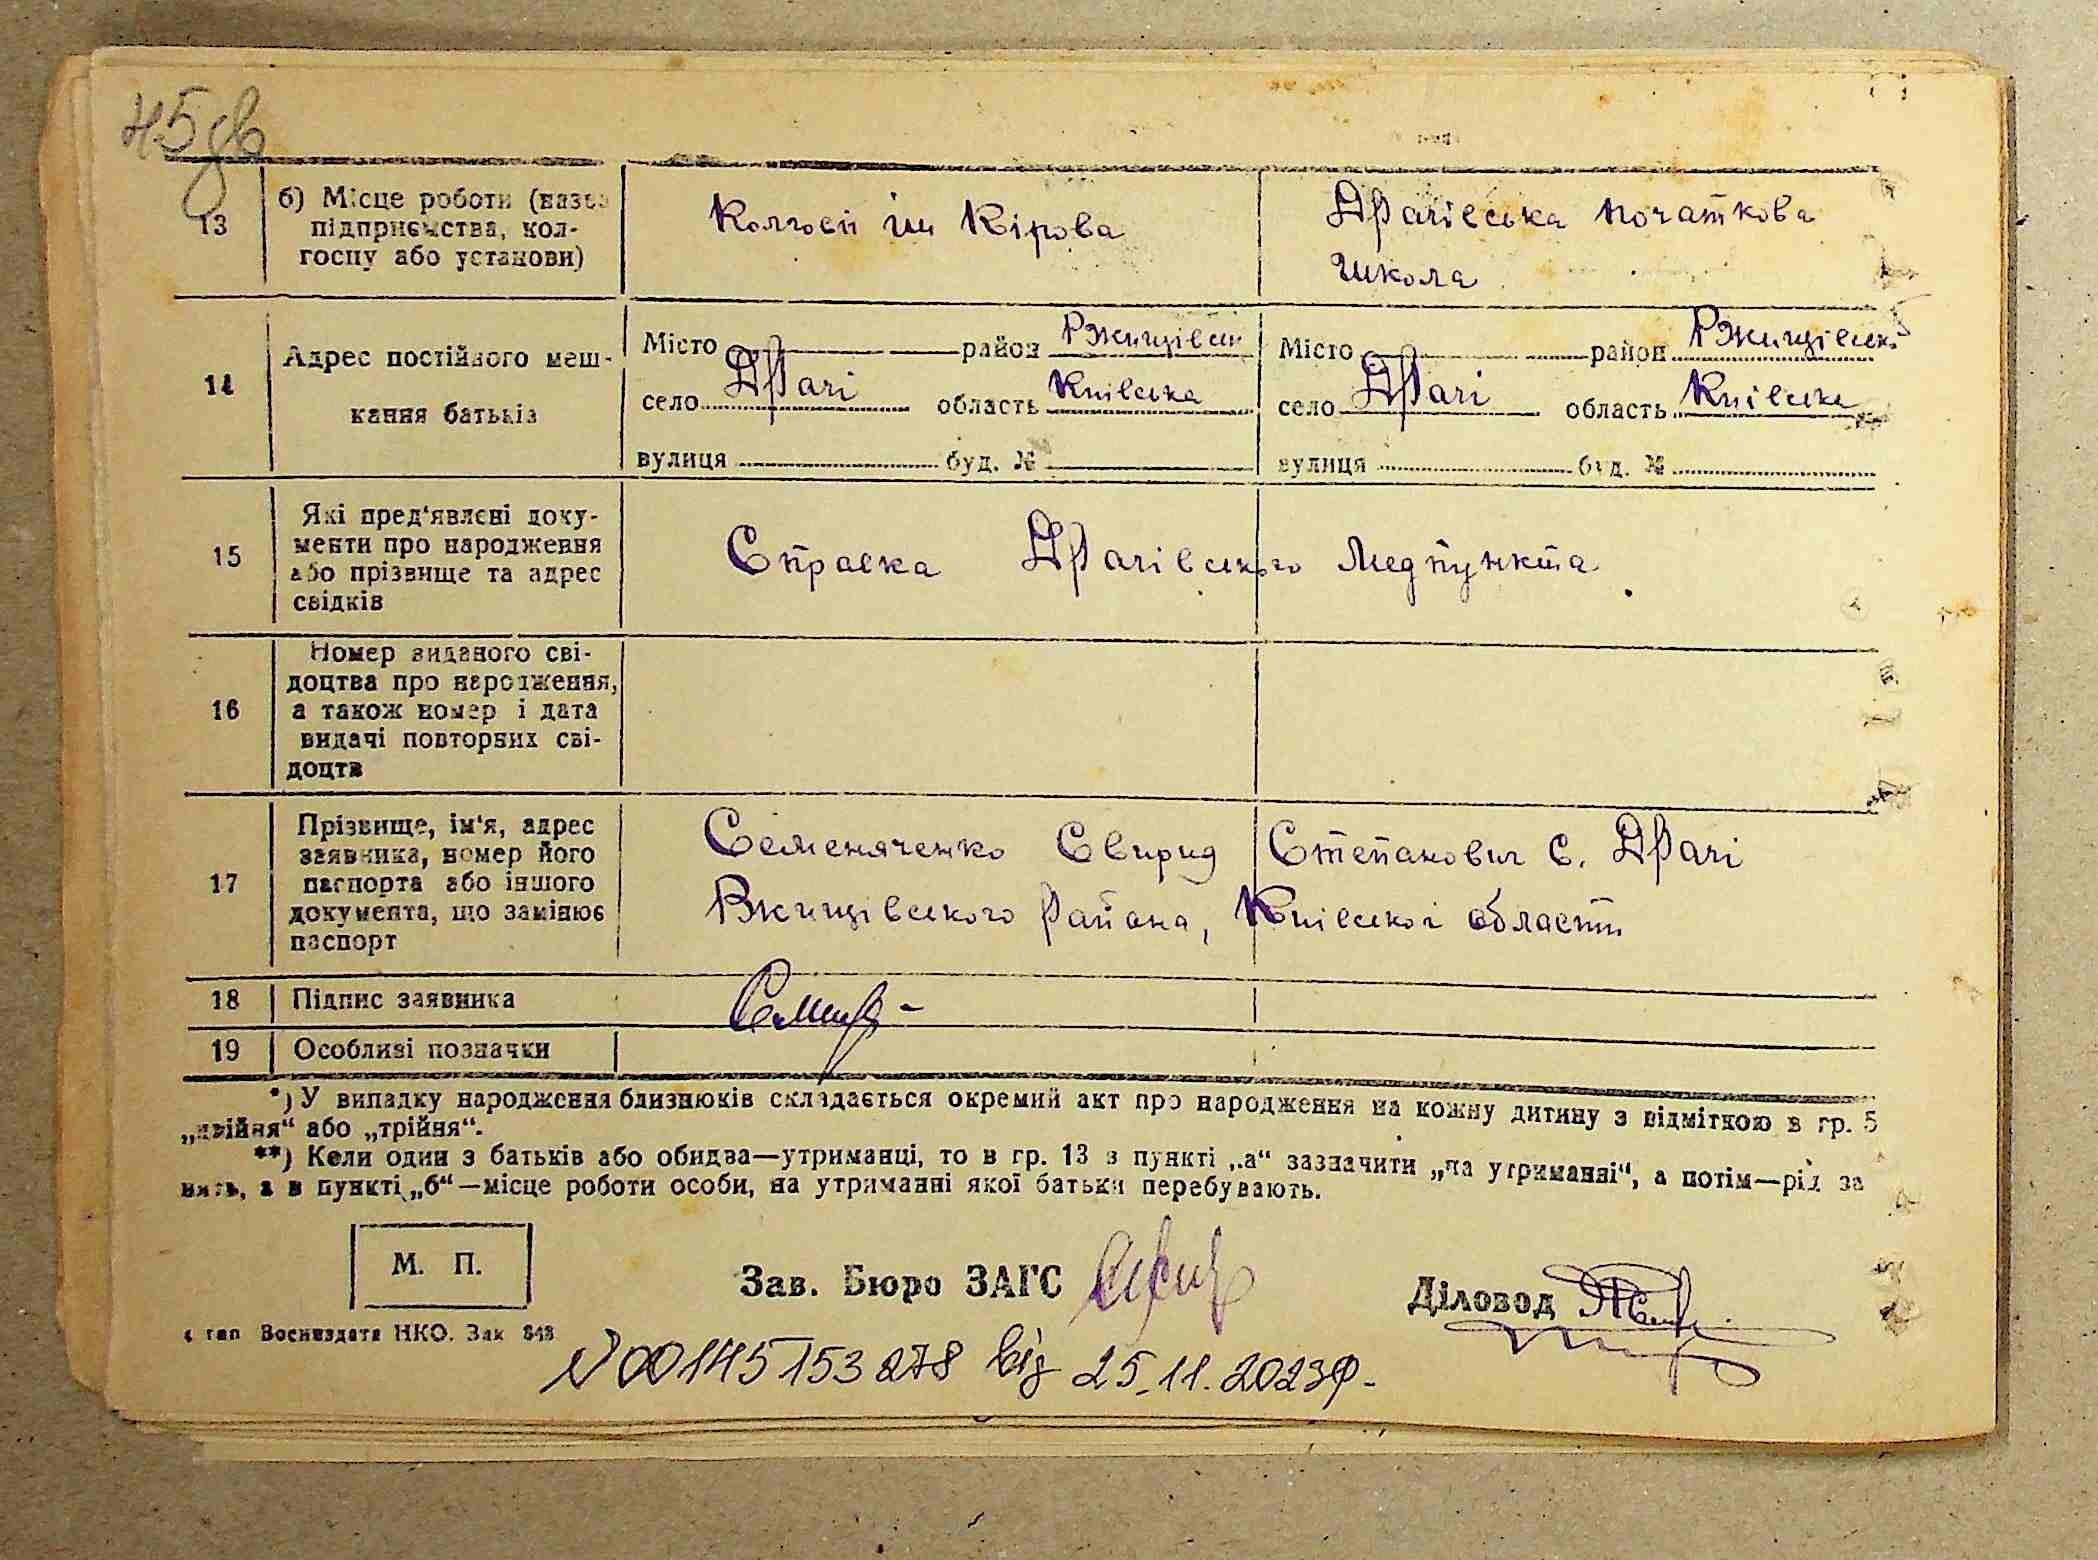 45
13
б) Місце роботи (назва
підприємства, кол-
госпу або установи)
Колгосп ім Кірова
Драчівська початкова
школа
14
Адрес постійного меш-
кання батьків
Місто район Ржищівськ
село Драчі область Київська
вулиця буд. №
Місто район Ржищівськ
село Драчі область Київська
вулиця буд. №
15
Які пред'явлені доку-
менти про народження
або прізвище та адрес
свідків
Справка Драчівського Медпункта
16
Номер виданого сві-
доцтва про народження,
а також номер і дата
видачі повторних сві-
доцтв
17
Прізвище, ім'я, адрес
заявника, номер його
паспорта або іншого
документа, що замінює
паспорт
Семеняченко Свирид Степанович с. Драчі
Ржищівського района, Київської області
18
Підпис заявника
19
Особливі позначки
*) У випадку народження близнюків складається окремий акт про народження на кожну дитину з відміткою в гр. 5
„двійня“ або „трійня“.
**) Коли один з батьків або обидва—утриманці, то в гр. 13 в пункті „а“ зазначити „на утриманні“, а потім—рід за
нять, а в пункті „б“—місце роботи особи, на утриманні якої батьки перебувають.
М. П.
Зав. Бюро ЗАГС
Діловод
тип Воениздата НКО. Зак 848
N 00145153278 від 25.11.2023р.